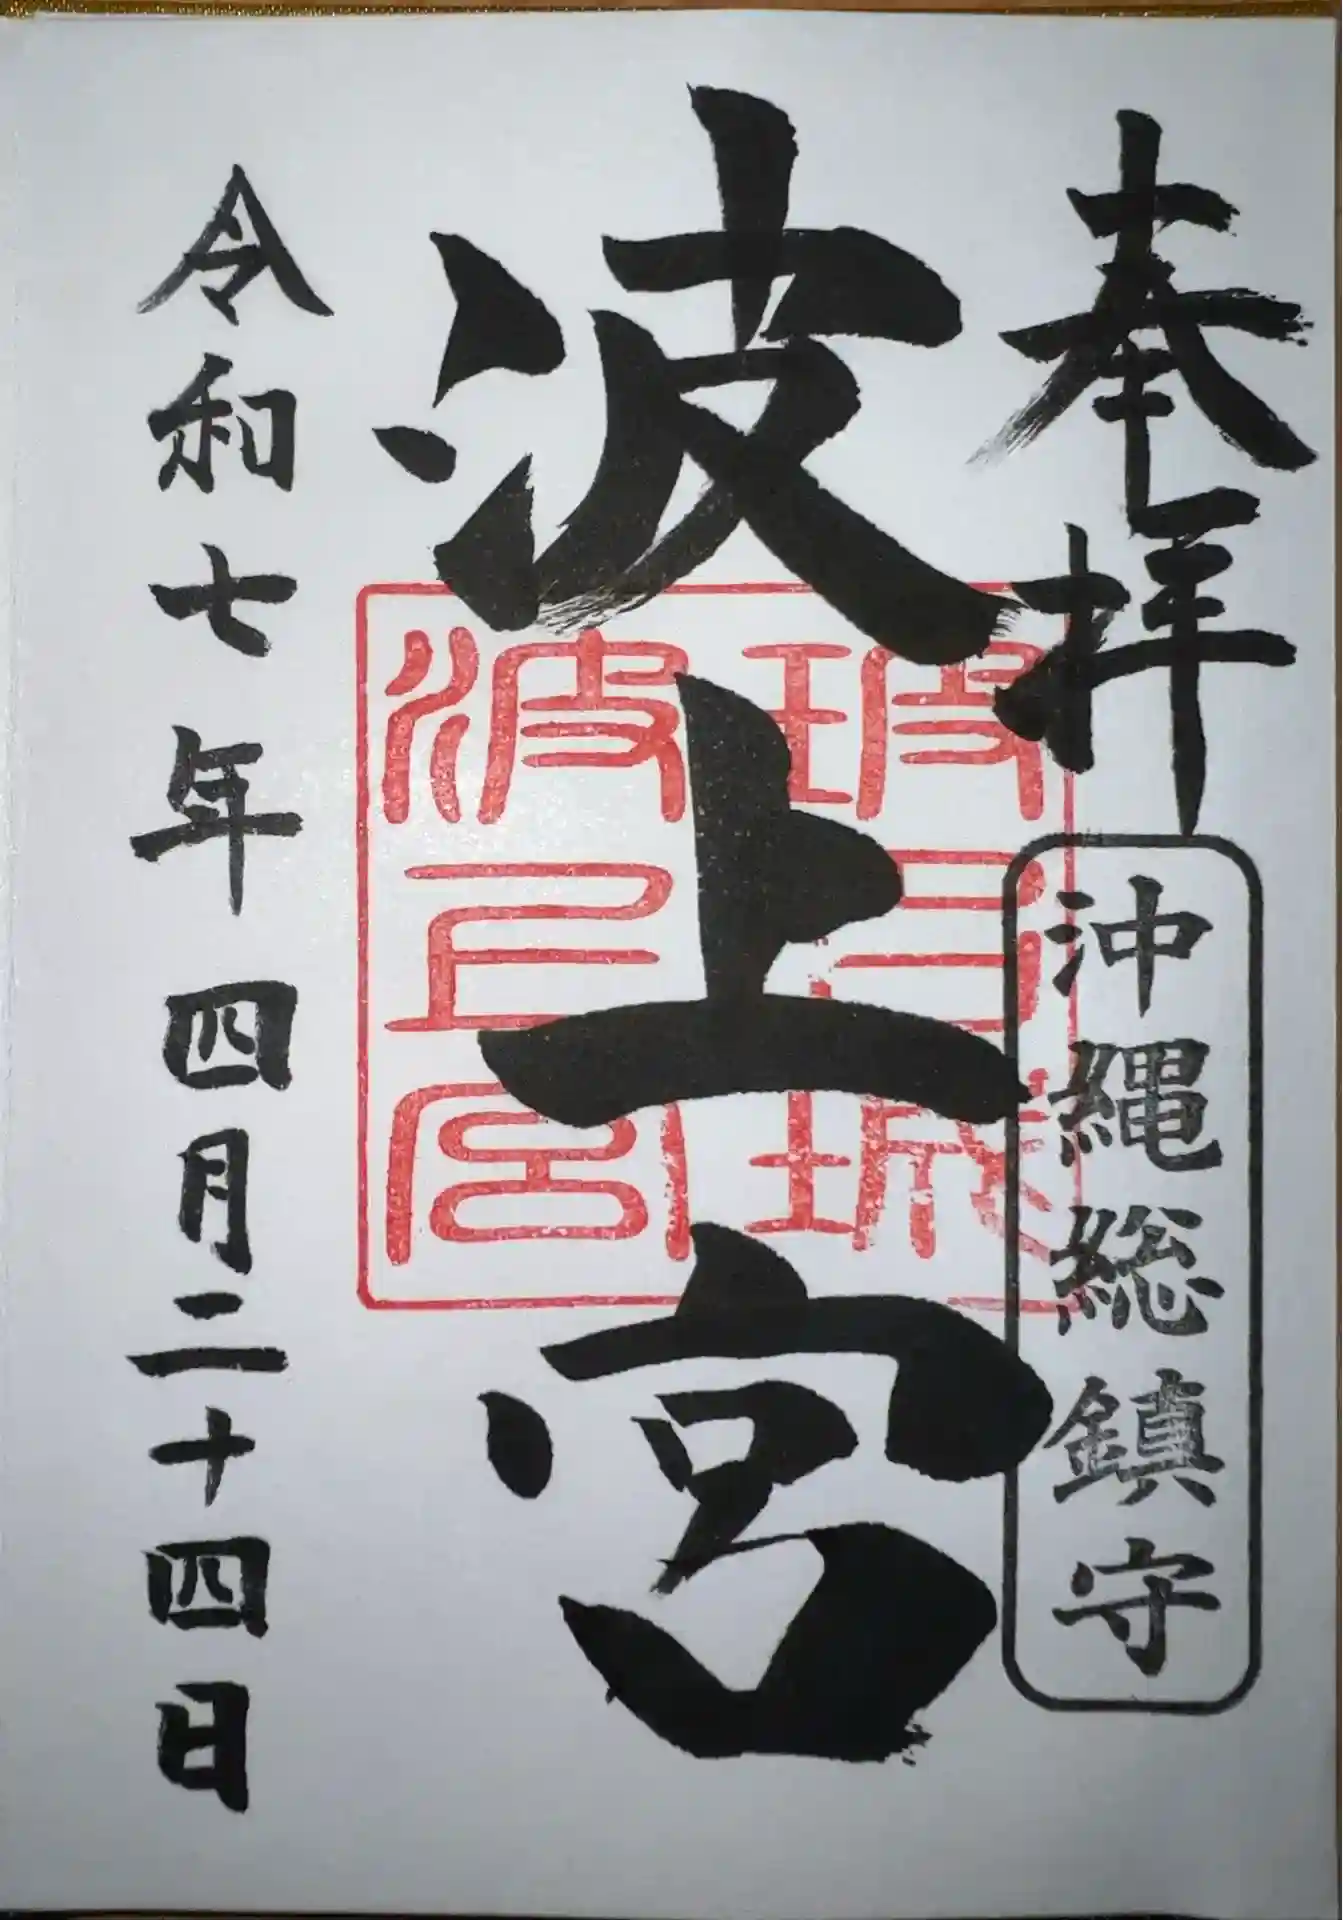 奉拝
沖縄総鎮守
波上宮
令和七年四月二十四日
波上宮